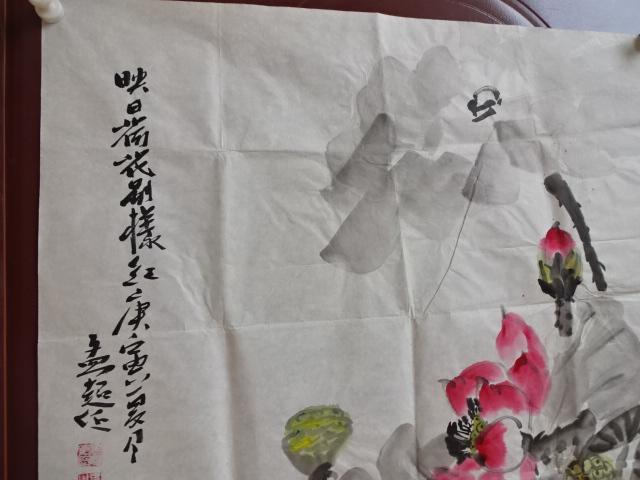 映日荷花别樣红庚寅之夏月
孟超作